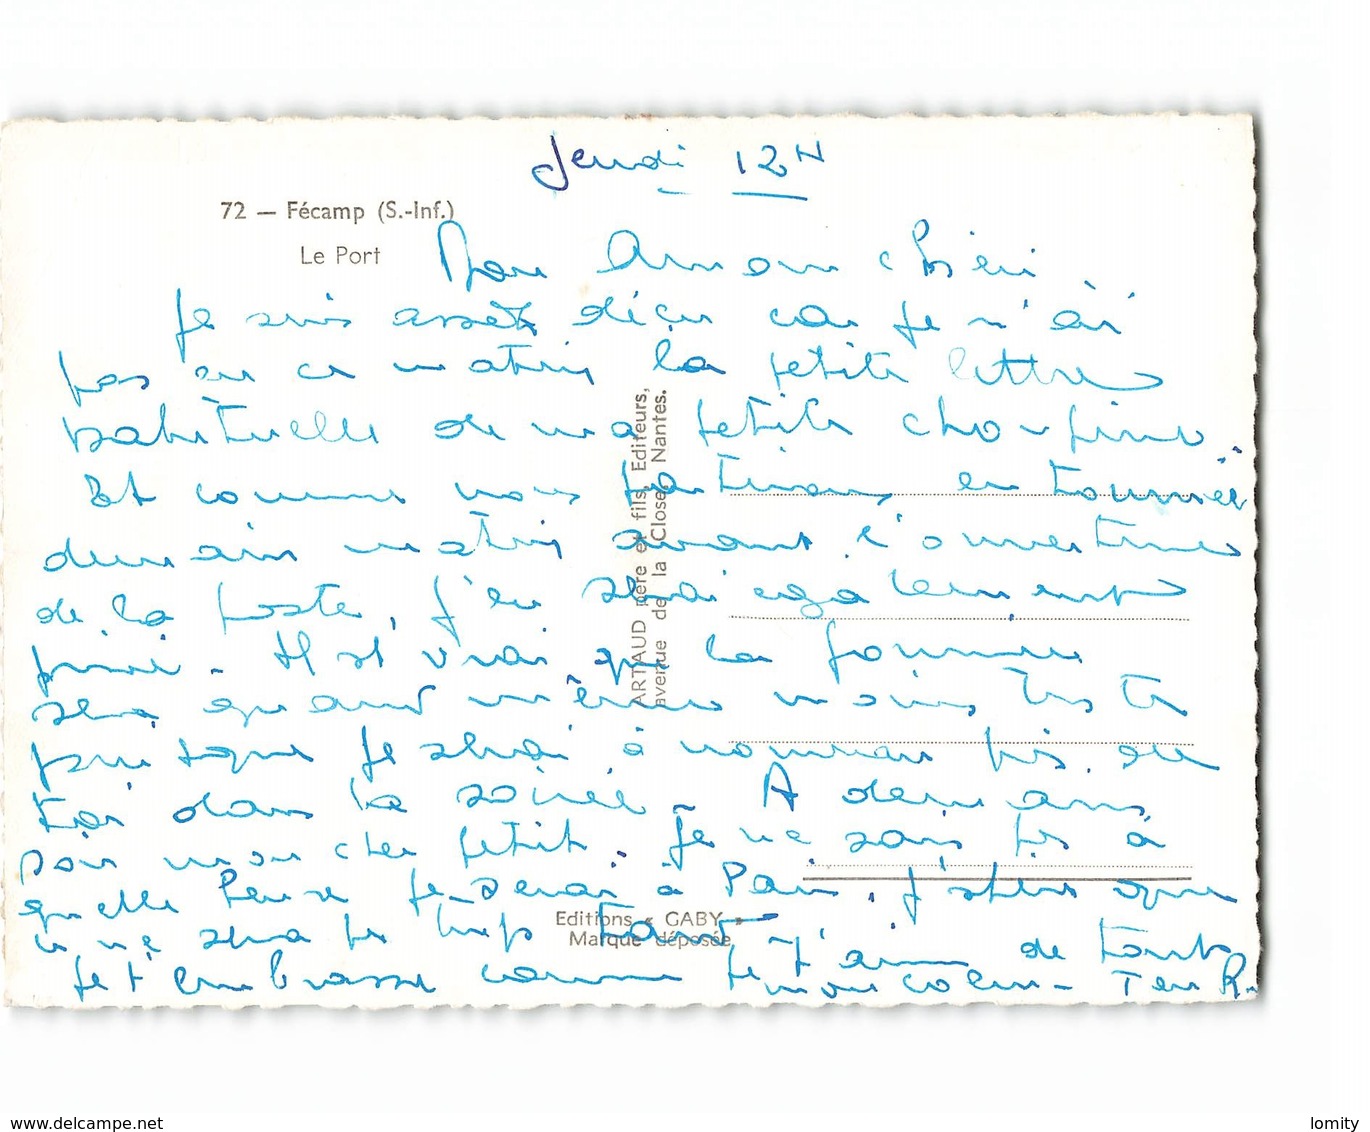 Jeudi 12H
72 — Fécamp (S.-Inf.)
Le Port
Mon Amour chéri
Je suis assez déçu car je n'ai
pas eu ce matin la petite lettre
habituelle de ma petite
Et comme nous partirons en tournée
demain matin avant l'ouverture
de la poste, j'en serai également
privé. Il est vrai que la journée
sera quand même moins triste
puisque je serai à nouveau près de
toi dans la soirée. A demain
soir mon cher petit. Je ne sais pas à
quelle heure je serai à Paris. J'espère que
ce ne sera pas trop tard
Je t'embrasse comme je t'aime de tout
mon coeur - Ton R.
ARTAUD père et fils, Editeurs,
avenue de la Close, Nantes.
Editions « GABY »
Marque déposée
www.delcampe.net
lomity